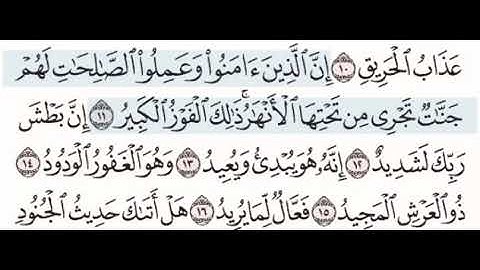 عَذَابُ ٱلْحَرِيقِ ١٠ إِنَّ ٱلَّذِينَ ءَامَنُوا۟ وَعَمِلُوا۟ ٱلصَّـٰلِحَـٰتِ لَهُمْ
جَنَّـٰتٌ تَجْرِى مِن تَحْتِهَا ٱلْأَنْهَـٰرُ ۚ ذَٰلِكَ ٱلْفَوْزُ ٱلْكَبِيرُ ١١ إِنَّ بَطْشَ
رَبِّكَ لَشَدِيدٌ إِنَّهُۥ هُوَ يُبْدِئُ وَيُعِيدُ ١٣ وَهُوَ ٱلْغَفُورُ ٱلْوَدُودُ ١٤
ذُو ٱلْعَرْشِ ٱلْمَجِيدُ ١٥ فَعَّالٌ لِّمَا يُرِيدُ ١٦ هَلْ أَتَىٰكَ حَدِيثُ ٱلْجُنُودِ